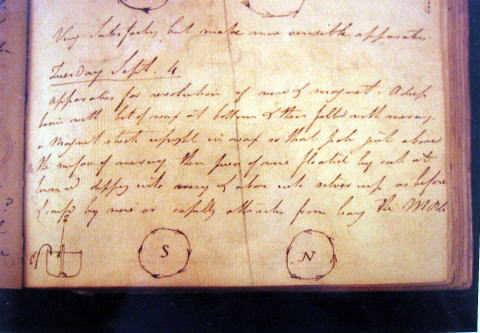 Very satisfactory but make more sensible apparatus.
Tuesday Sept. 4
Apparatus for revolution of wire & magnet. A deep
basin with bit of wax at bottom & then filled with mercury.
a Magnet stuck upright in wax so that pole just above
the surface of mercury then piece of wire floated by cork at
lower end dipping into mercury & above into silver cup as before
& by wire or from the
S N